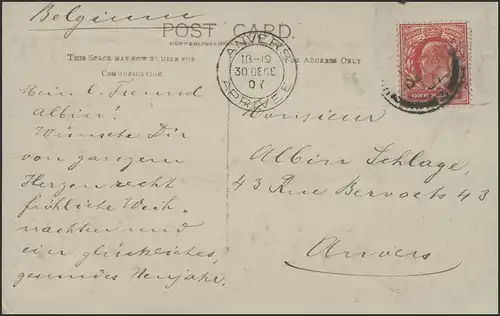 Belgium
POST CARD.
THIS SPACE MAY NOW BE USED FOR
COMMUNICATION.
ADDRESS ONLY
ANVERS
18-19
30 DECE
07
ARRIVEE
Mein l. Freund
Albin!
Wünsche Dir
von ganzem
Herzen recht
fröhliche Weih„
nachten und
ein glückliches,
gesundes Neujahr.
Monsieur
Albin Schlage,
43 Rue Bervoets 43
Anvers